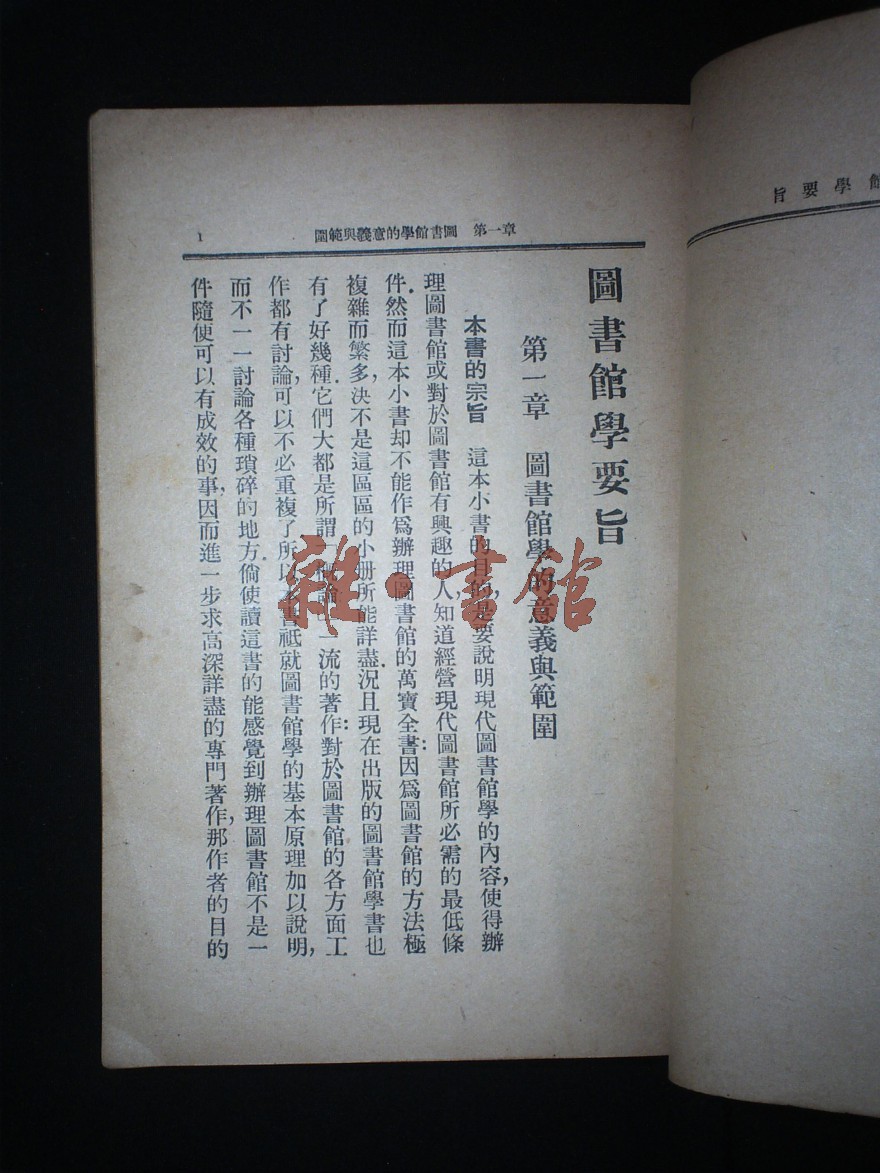 圖書館學要旨
第一章 圖書館學的意義與範圍
本書的宗旨 這本小書的目的,是要說明現代圖書館學的內容,使得辦
理圖書館或對於圖書館有興趣的人,知道經營現代圖書館所必需的最低條
件.然而這本小書却不能作爲辦理圖書館的萬寶全書:因爲圖書館的方法極
複雜而繁多,決不是這區區的小册所能詳盡.況且現在出版的圖書館學書也
有了好幾種.它們大都是所謂「概論」一流的著作:對於圖書館的各方面工
作都有討論,可以不必重複了.所以本書祇就圖書館學的基本原理加以說明,
而不一一討論各種瑣碎的地方.倘使讀這書的能感覺到辦理圖書館不是一
件隨便可以有成效的事,因而進一步求高深詳盡的專門著作,那作者的目的
第一章 圖書館學的意義與範圍
1
館學要旨
雜·書館